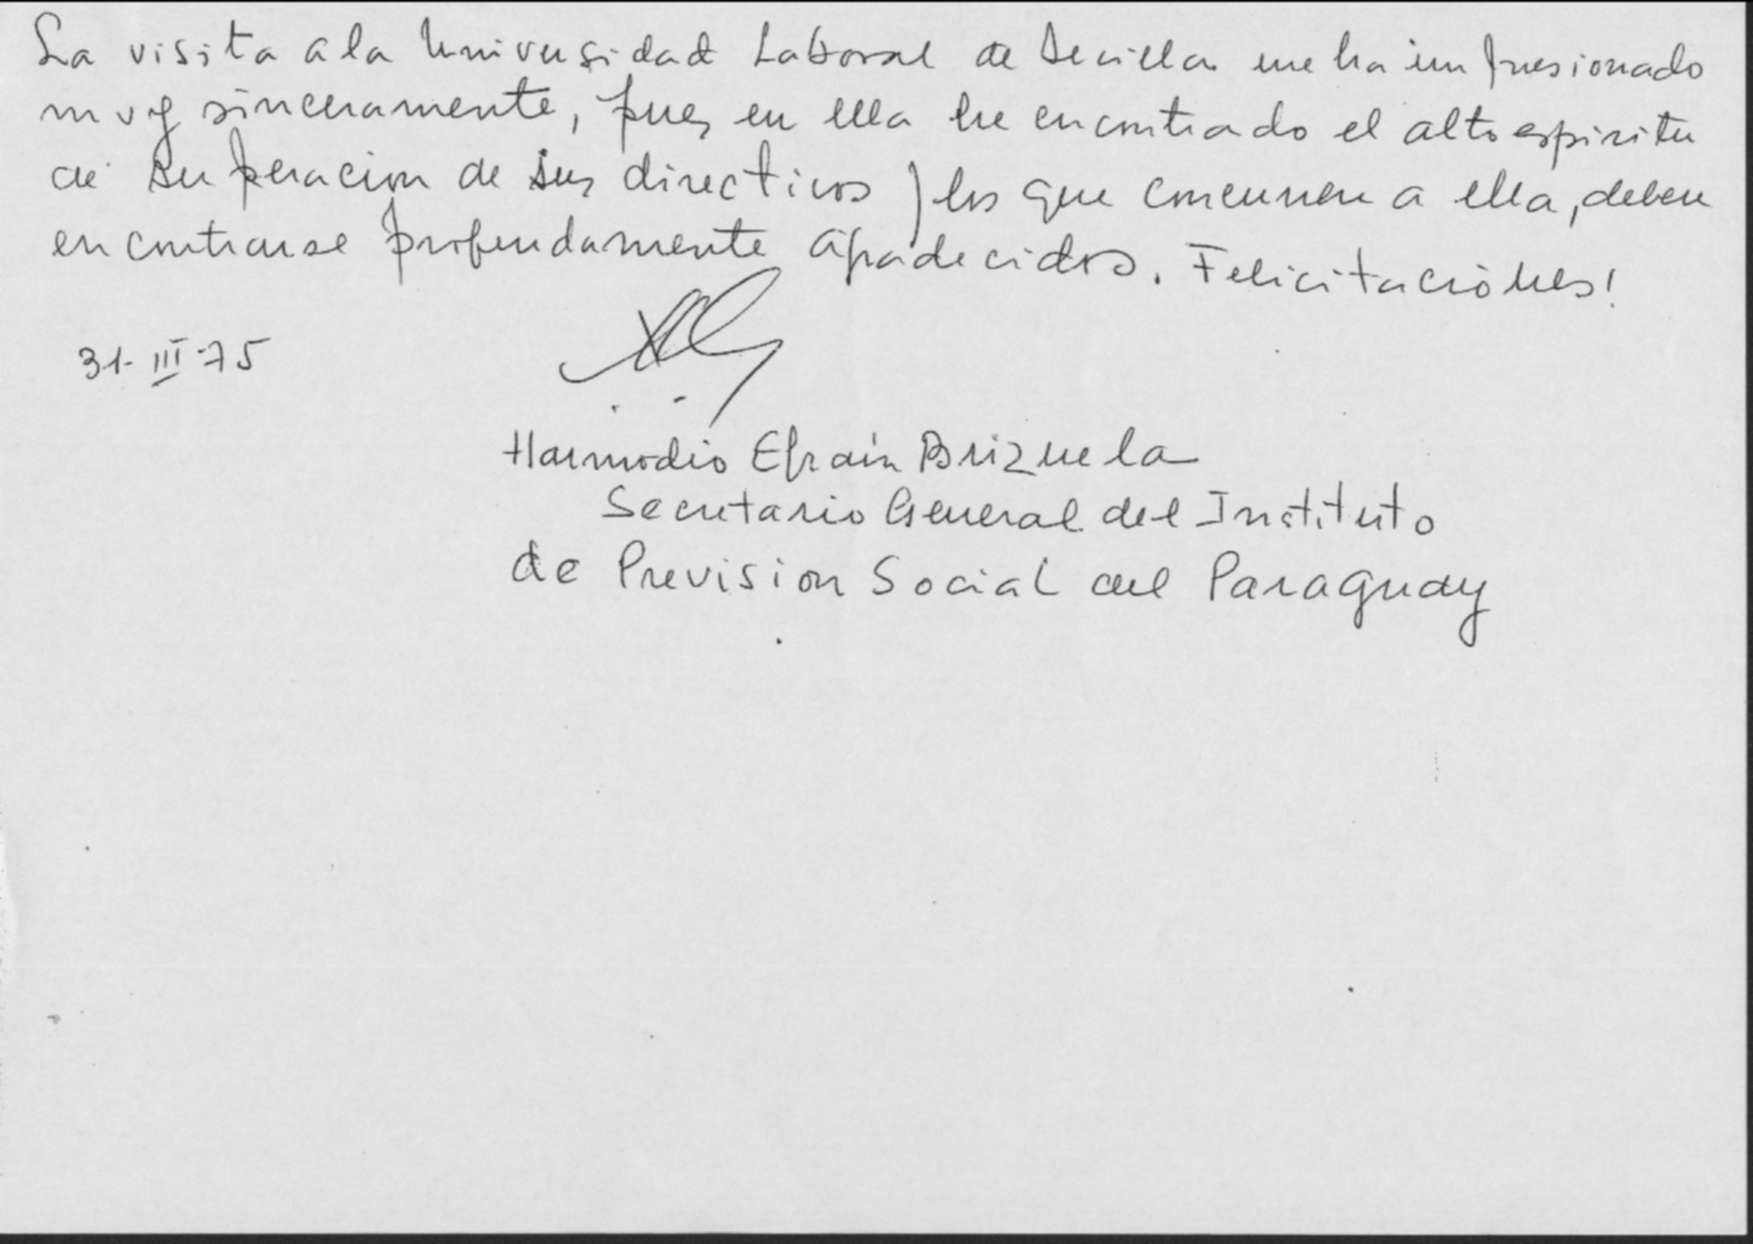 La visita a la Universidad Laboral de Sevilla me ha impresionado
muy sinceramente, pues en ella he encontrado el alto espiritu
de superacion de sus directivos y los que concurren a ella, deben
encontrarse profundamente agradecidos. Felicitaciónes!
31-III-75
Harmodio Efraín Brizuela
Secretario General del Instituto
de Prevision Social del Paraguay